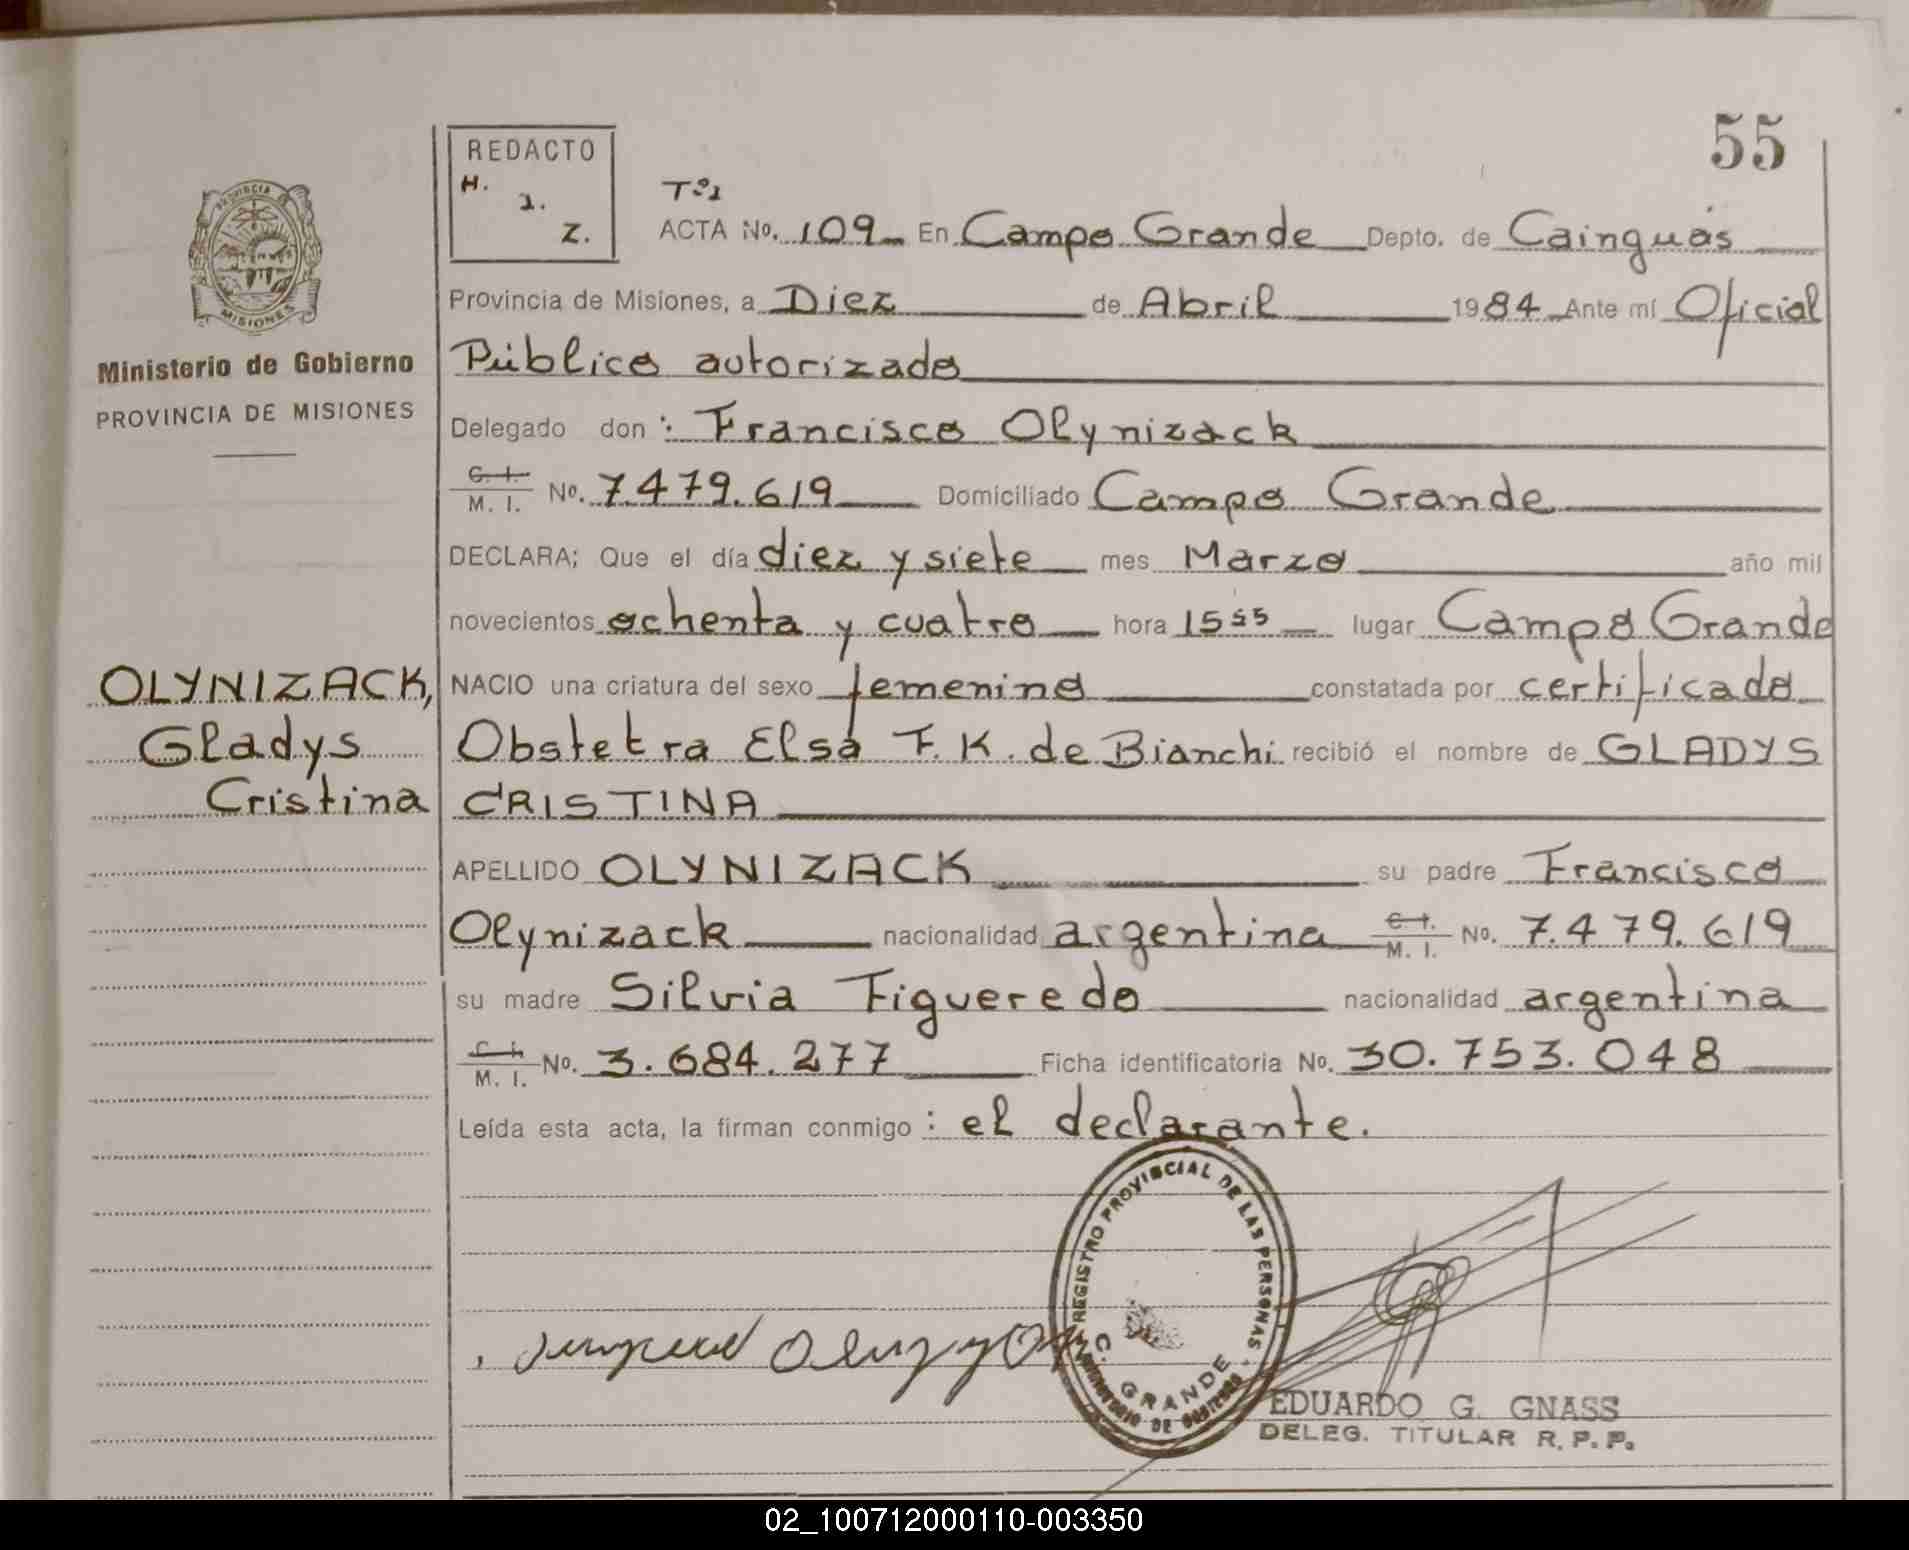 55
REDACTO
H.
1.
Z.
PROVINCIA
MISIONES
Ministerio de Gobierno
PROVINCIA DE MISIONES
Tº1
ACTA No. 109 En Campo Grande Depto. de Cainguás
Provincia de Misiones, a Diez de Abril 1984 Ante mí Oficial
Público autorizado
Delegado don: Francisco Olynizack
C. I.
M. I. No. 7.479.619 Domiciliado Campo Grande
DECLARA; Que el día diez y siete mes Marzo año mil
novecientos ochenta y cuatro hora 15 55 lugar Campo Grande
OLYNIZACK, NACIO una criatura del sexo femenino constatada por certificado
Gladys Obstetra Elsa F. K. de Bianchi recibió el nombre de GLADYS
Cristina CRISTINA
APELLIDO OLYNIZACK su padre Francisco
Olynizack nacionalidad argentina C. I. M. I. No. 7.479.619
su madre Silvia Figueredo nacionalidad argentina
C. I.
M. I. No. 3.684.277 Ficha identificatoria No. 30.753.048
Leída esta acta, la firman conmigo: el declarante.
REGISTRO PROVINCIAL DE LAS PERSONAS
C. GRANDE
MINISTERIO DE GOBIERNO
EDUARDO G. GNASS
DELEG. TITULAR R. P. P.
02_100712000110-003350